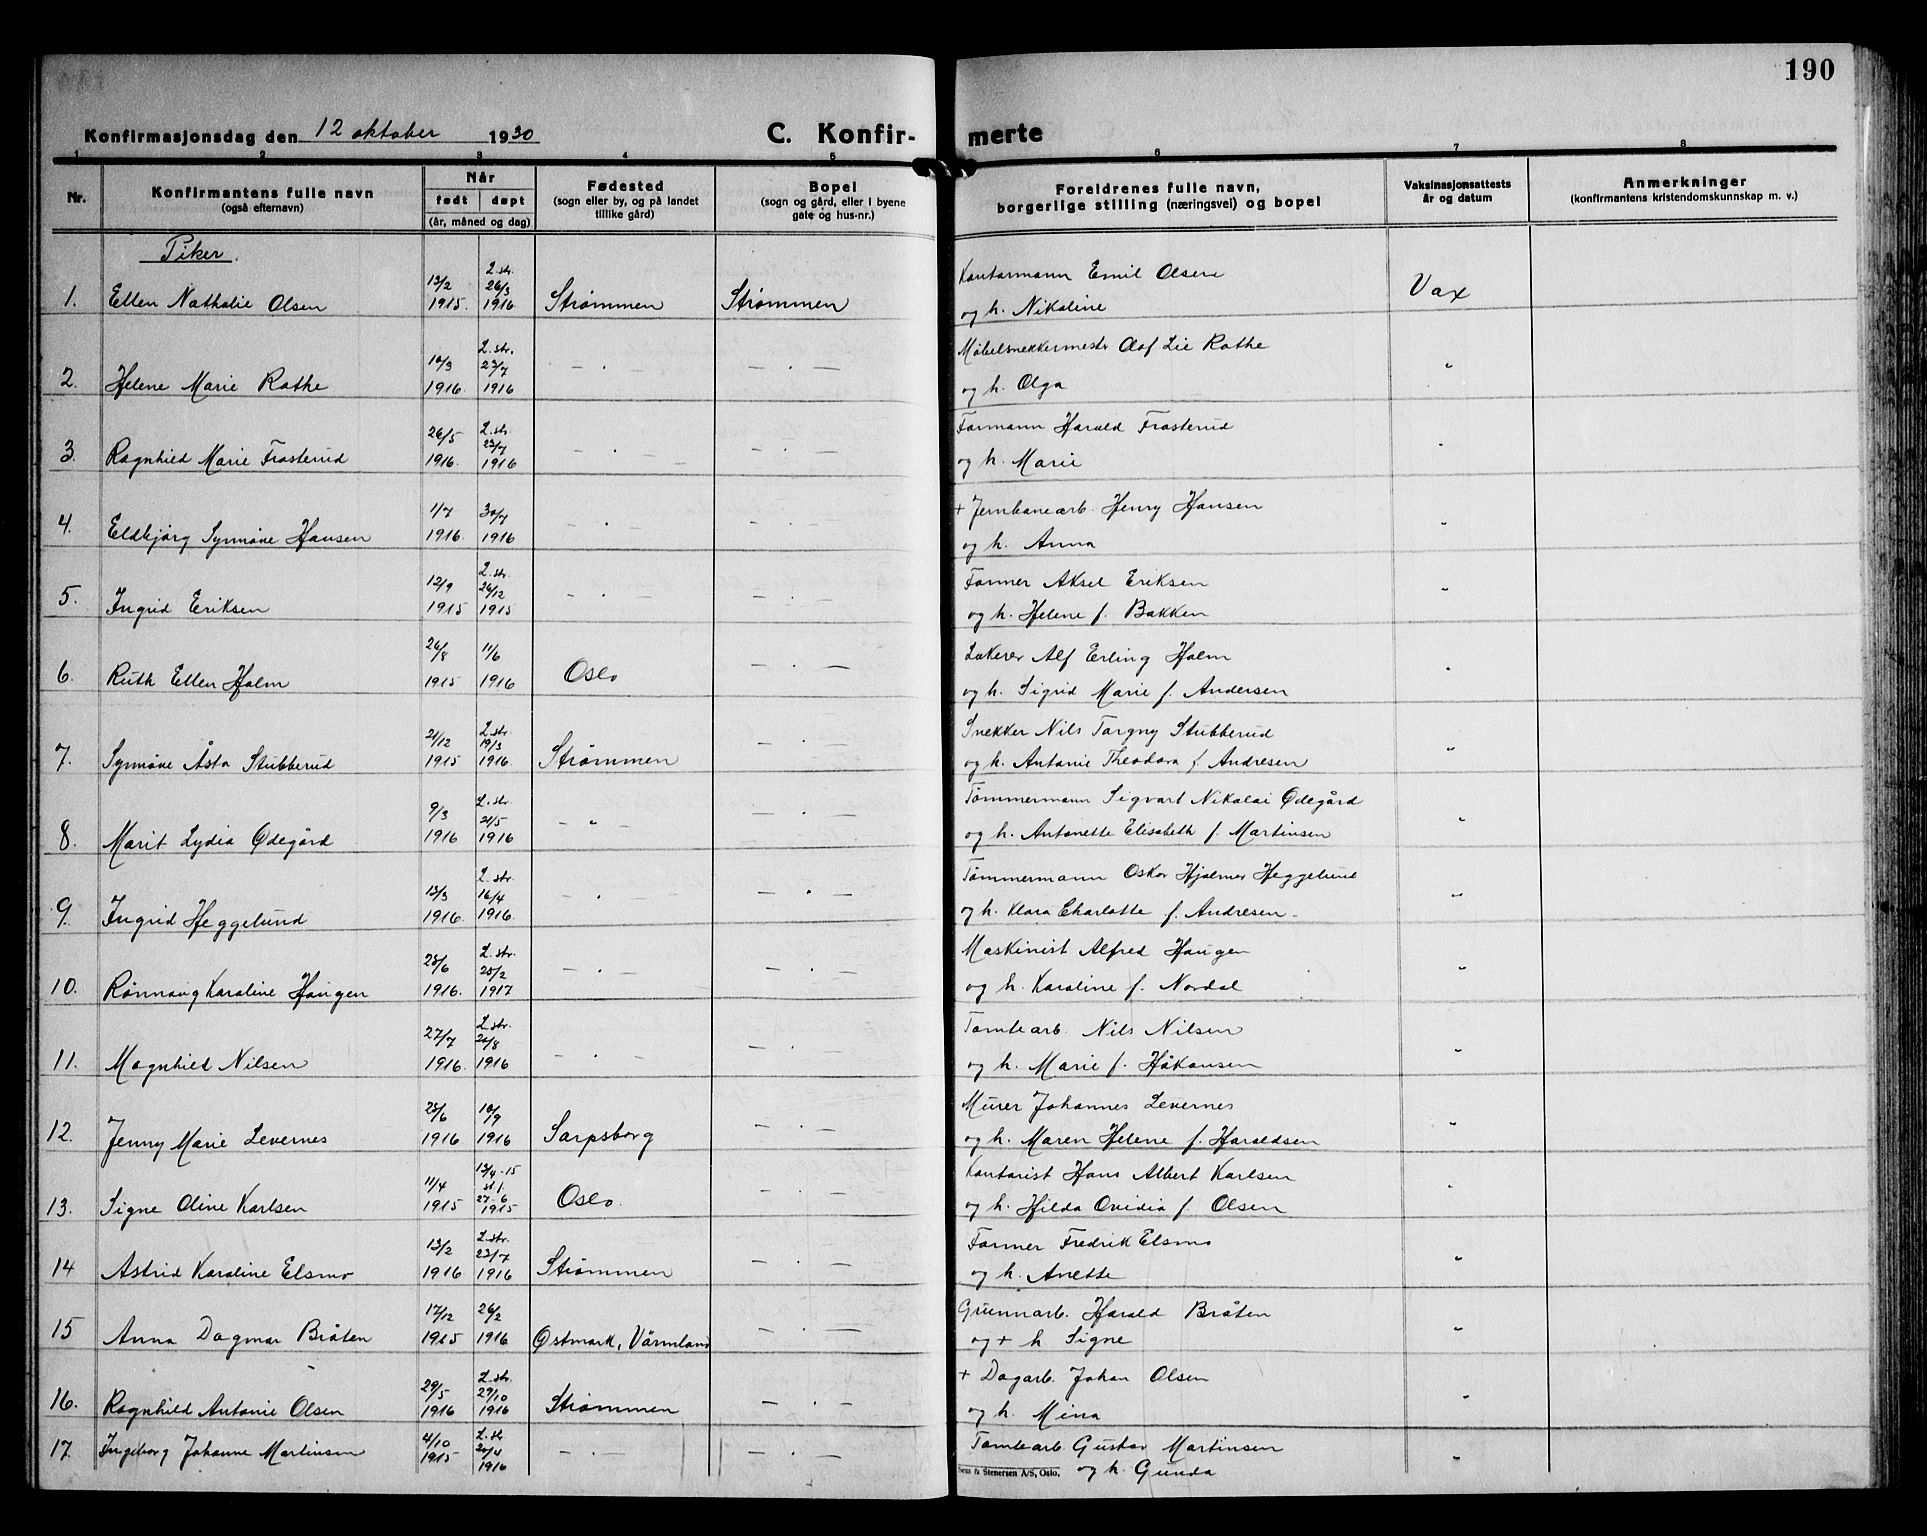 190
Konfirmasjonsdag den 12 oktober 1930 C. Konfir- merte
1 2 3 4 5 6 7 8
Nr. Konfirmantens fulle navn (også efternavn) Når født døpt (år, måned og dag) Fødested (sogn eller by, og på landet tillike gård) Bopel (sogn og gård, eller i byene gate og hus-nr.) Foreldrenes fulle navn, borgerlige stilling (næringsvei) og bopel Vaksinasjonsattests år og datum Anmerkninger (konfirmantens kristendomskunnskap m. v.)
Piker.
1. Ellen Nathalie Olsen 13/2 1915. L. str. 26/3 1916 Strømmen Strømmen Kontormann Emil Olsen
og h. Nikoline Vax
2. Helene Marie Rothe 10/3 1916. L. str. 23/7 1916 — . — — . — Møbelsnekkermestr Olof Lie Rothe
og h. Olga "
3. Ragnhild Marie Frosterud 26/5 1916. L. str. 23/7 1916 — . — — . — Formann Harald Frosterud
og h. Marie "
4. Eldbjørg Synnøve Hansen 1/7 1916. 30/7 1916 — . — — . — + Jernbanearb. Henry Hansen
og h. Anna "
5. Ingrid Eriksen 12/9 1915 L. str. 26/12 1915 — . — — . — Former Aksel Eriksen
og h. Helene f. Bakken "
6. Ruth Ellen Holm 26/8 1915 11/6 1916 Oslo — . — Lakerer Alf Erling Holm
og h. Sigrid Marie f. Andersen "
7. Synnøve Åsta Stubberud 21/12 1915 L. str. 19/3 1916 Strømmen — . — Snekker Nils Torgny Stubberud
og h. Antonie Theodora f. Andresen "
8. Marit Lydia Ødegård 9/3 1916 L. str. 21/5 1916 — " — — . — Tømmermann Sigvart Nikolai Ødegård
og h. Antonette Elisabeth f. Martinsen "
9. Ingrid Heggelund 13/3 1916. L. str. 16/4 1916. — . — — . — Tømmermann Oskar Hjalmar Heggelund
og h. Klara Charlotte f. Andresen. "
10. Rønnaug Karoline Haugen 28/6 1916. L. str. 25/2 1917 — . — — . — Maskinist Alfred Haugen
og h. Karoline f. Nordal "
11. Magnhild Nilsen 27/7 1916. L. str. 20/8 1916 — . — — . — Tomtearb. Nils Nilsen
og h. Marie f. Håkonsen "
12. Jenny Marie Levernes 25/6 1916 10/9 1916 Sarpsborg — . — Murer Johannes Levernes
og h. Maren Helene f. Haraldsen "
13. Signe Oline Karlsen 11/4 1915 13/4-15 st f. 27-6 1915 Oslo. — . — Kontorist Hans Albert Karlsen
og h. Hilda Ovidia f. Olsen "
14 Astrid Karoline Elsmo 13/2 1916 L. str. 23/7 1916 Strømmen — . — Former Fredrik Elsmo
og h. Anette "
15 Anna Dagmar Bråten 17/12 1915 26/2 1916 Østmark, Värmland — . — Grunnarb. Harald Bråten
og + h Signe "
16. Ragnhild Antonie Olsen 29/5 1916 L. str. 29/10 1916 Strømmen — . — + Dagarb. Johan Olsen
og h. Mina "
17. Ingeborg Johanne Martinsen 4/10 1915 L. str 20/4 1916 — . — — . — Tomtearb. Gustav Martinsen
og h. Gunda "
& Stenersen A/S, Oslo.